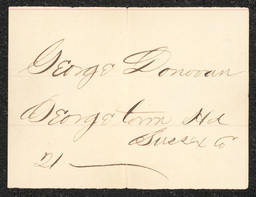 George Donovan
Georgetown Hd
Sussex Co
21